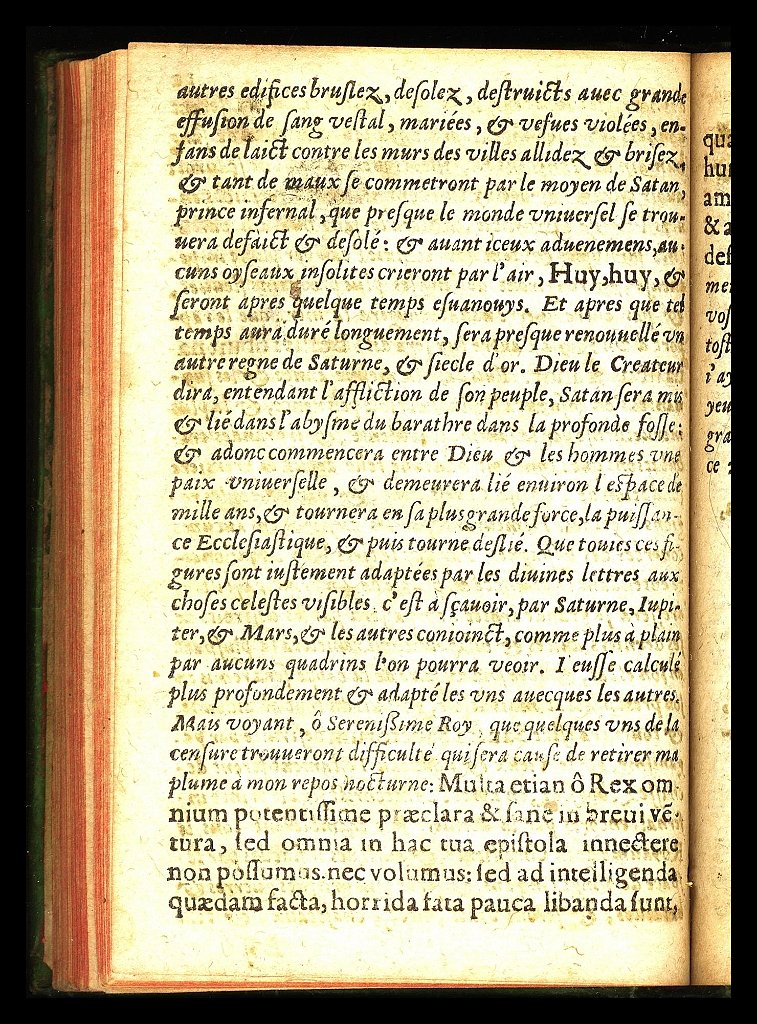 autres edifices bruſlez, deſolez, deſtruicts auec grande
effuſion de ſang veſtal, mariées, & vefues violées, en-
fans de laict contre les murs des villes allidez & briſez,
& tant de maux ſe commetront par le moyen de Satan,
prince infernal, que preſque le monde vniuerſel ſe trou-
uera defaict & deſolé: & auant iceux aduenemens, au-
cuns oyſeaux inſolites crieront par l'air, Huy, huy, &
ſeront apres quelque temps eſuanouys. Et apres que tel
temps aura duré longuement, ſera preſque renouuellé vn
autre regne de Saturne, & ſiecle d'or. Dieu le Createur
dira, entendant l'affliction de ſon peuple, Satan ſera mis
& lié dans l'abyſme du barathre dans la profonde foſſe:
& adonc commencera entre Dieu & les hommes vne
paix vniuerſelle, & demeurera lié enuiron l eſpace de
mille ans, & tournera en ſa plus grande force, la puiſſan-
ce Eccleſiaſtique, & puis tourne deſlié. Que toutes ces fi-
gures ſont iuſtement adaptées par les diuines lettres aux
choſes celeſtes viſibles, c'eſt à ſçauoir, par Saturne, Iupi-
ter, & Mars, & les autres conioinct, comme plus à plain
par aucuns quadrins l'on pourra veoir. I'euſſe calculé
plus profondement & adapté les vns auecques les autres.
Mais voyant, ô Sereniſſime Roy, que quelques vns de la
cenſure trouueront difficulté qui ſera cauſe de retirer ma
plume à mon repos nocturne: Multa etian ô Rex om
nium potentiſſime præclara & ſane in breui vē-
tura, ſed omnia in hac tua epiſtola innectere
non poſſumus nec volumus: ſed ad intelligenda
quædam facta, horrida fata pauca libanda ſunt,
qua
hu
am
& a
def
me
voſ
toſt
i'ay
yeu
gra
ce